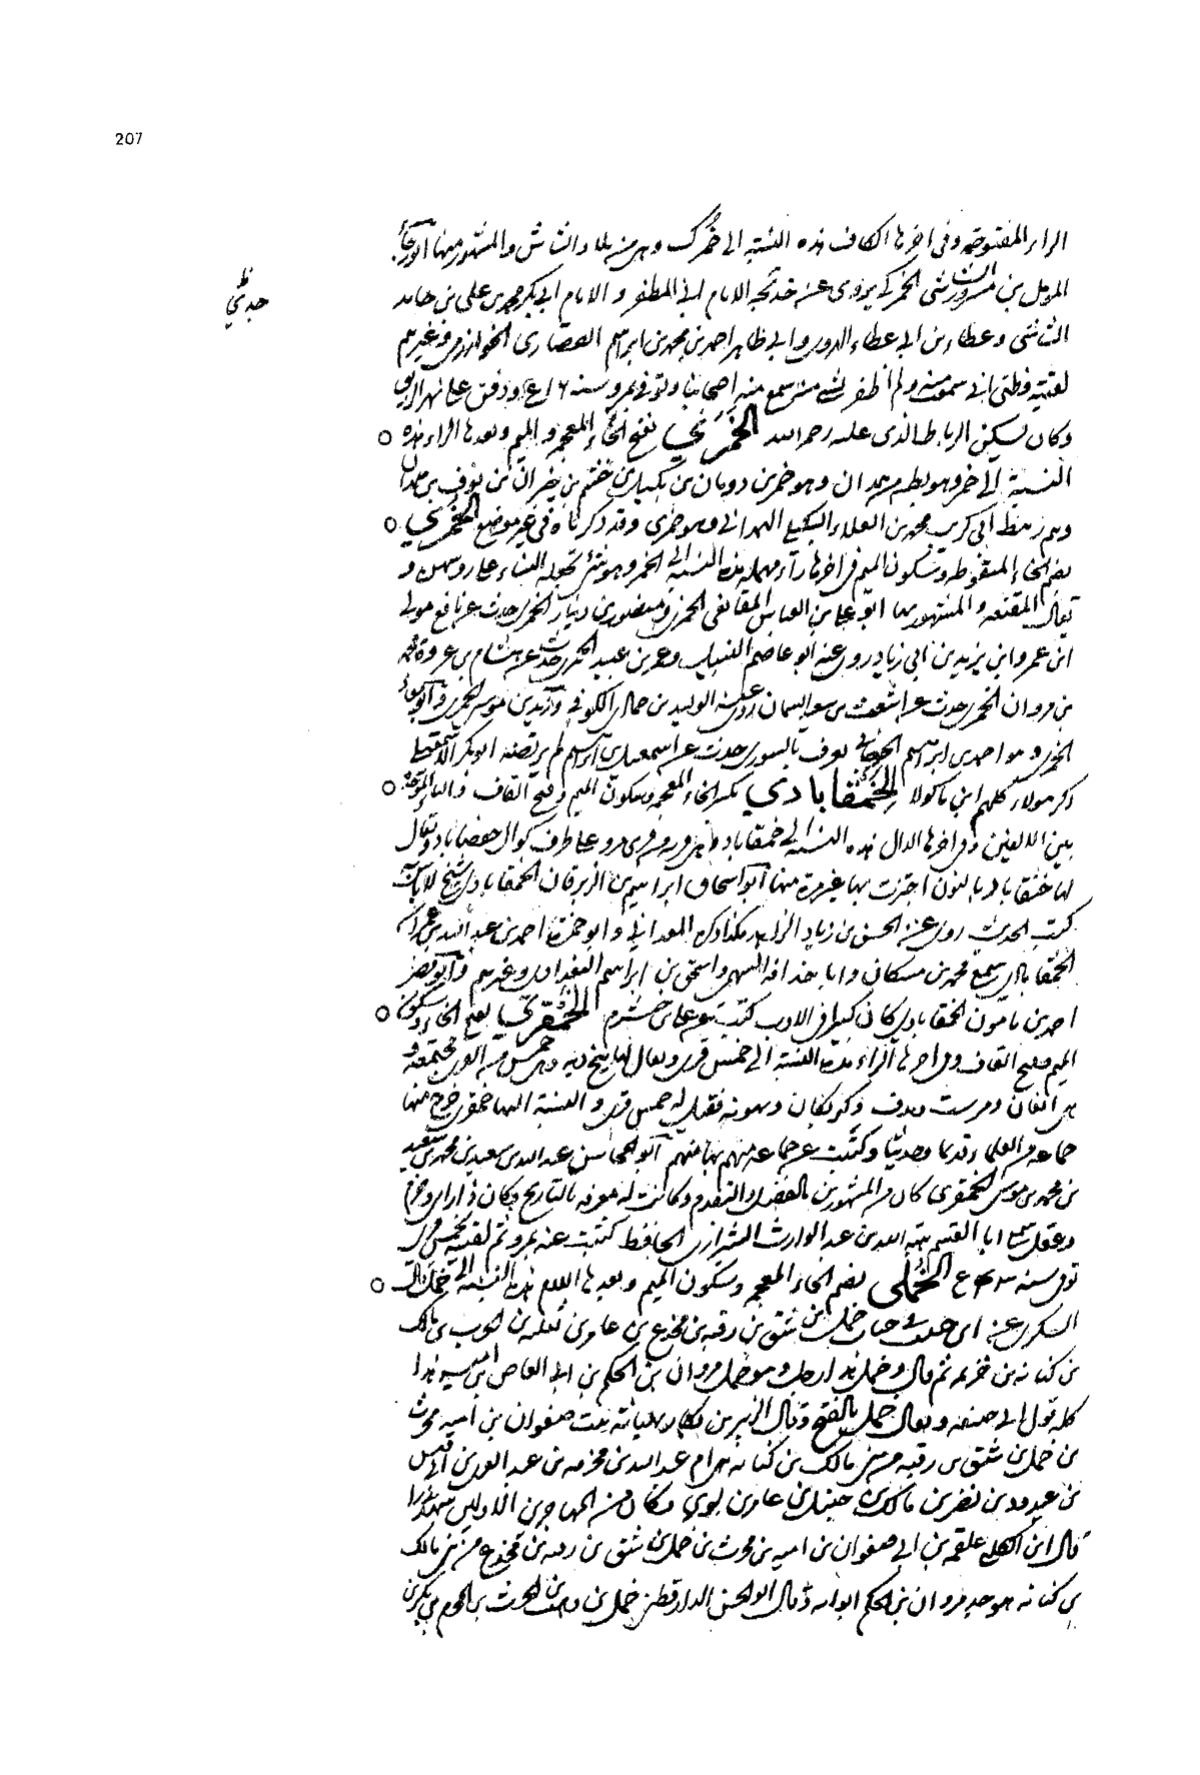 207
الراء المفتوحة وفى اخرها الكاف هذه النسبة الى خمرك وهى من بلاد الشاش والمشهور منها ابو الرجا
المومل بن مسرور الشاشى الخمركى يروى عن جده الامام ابى المظفر والامام ابى بكر محمد بن على بن حامد
ظ جدي
الشاشى وعطاء بن ابى عطاء الهروى وابى طاهر احمد بن محمد بن ابراهيم القصارى الخوارزمى وغيرهم
لقيته وظنى انى سمعت منه ولم اظفر بشىء سمع منه اصحابنا وتوفى بمرو سنة ودفن على نهر
وكان يسكن الرباط الذى عليه رحمه الله الخمرى بفتح الخاء المعجمة والميم وبعدها الراء هذه
النسبة الى خمر وهو بطن من همدان وهو خمر بن دومان بن بكيل بن خثم بن خيران بن نوف بن همدان
وهم رهط ابى كريب محمد بن العلاء البكيلى الهمدانى وهو خمرى وقد ذكرناه فى غير موضع الخمرى
بضم الخاء المنقوطة وسكون الميم فى اخرها راء مهملة هذه النسبة الى الخمر وهو شىء تجعله النساء على روسهن و
يقال المقنعة والمشهور بها ابو على بن العباس المقانعى الخمرى ومنصور بن دينار الخمرى حدث عن نافع مولى
ابن عمر وابن يزيد بن ابى زياد روى عنه ابو عاصم النبيل وعمر بن عبيد الخمرى حدث عن هشام بن عروة
بن مروان الخمرى حدث عن اشعث بن سعيد السمان روى عنه الوليد بن حماد الكوفى وزيد بن موسى الخمرى وابو
الخمرى هو احمد بن ابراهيم يعرف بالسورى حدث عن اسمعيل بن ابراهيم لم يرتضه ابو بكر الاسمعيلى
ذكر هولاء كلهم ابن ماكولا الخمقابادى بكسر الخاء المعجمة وسكون الميم وفتح القاف والباء الموحدة
بين الالفين وفى اخرها الدال هذه النسبة الى خمقاباد وهى قرية من قرى مرو على طرف كوال حفصاباد ويقال
لها خنقاباد بالنون اجتزت بها غير مرة منها ابو اسحاق ابراهيم بن الزبرقان الخمقابادى شيخ
كتب الحديث روى عن الحسن بن زياد هكذا ذكره المعدانى وابو حمزة احمد بن عبد الله بن عمران
الخمقابادى سمع محمد بن مسكان وابا حذافة السهمى واسحق بن ابراهيم البغدادى وغيرهم وابو نصر
احمد بن مامون الخمقابادى كان كبيرا فى الادب كتب عن على بن خشرم الخمقرى بفتح الخاء وسكون
الميم وفتح القاف وفى اخرها الراء هذه النسبة الى خمس قرى ويقال لها پنج ديه وهى خمس من القرى مجتمعة و
هى ايغان ومرست وكريكان وبهونه فقيل له خمس قرى والنسبة اليها خمقرى خرج منها
جماعة من العلماء قديما وحديثا وكتبت عن جماعة منهم بها منهم ابو المحاسن عبد الله بن سعيد بن محمد بن سعيد
بن محمد بن موسى الخمقرى كان من المشهورين بالفضل والتقدم وكانت له معرفة بالتاريخ وكان ذا راى وحزم
وعقل سمع ابا القسم هبة الله بن عبد الوارث الشيرازى الحافظ كتبت عنه بمرو ثم لقيته بخمس قرى
توفى سنة الخملى بضم الخاء المعجمة وسكون الميم وبعدها اللام هذه النسبة الى خمل قال
السكرى عن ابن حبيب خمل بن شق بن رقبة بن مخدج بن عامر بن ثعلبة بن الحرث بن مالك
بن كنانة بن خزيمة ثم قال وخمل هذا وهو خمل مروان بن الحكم بن ابى العاص بن امية هذا
كله قول ابى جعفر ويقال خمل بالفتح وقال الزبير بن بكار بنت صفوان بن امية بن محرث
بن خمل بن شق بن رقبة من بنى مالك بن كنانة هى ام عبد الله بن مخرمة بن عبد العزى بن ابى قيس
بن عبد ود بن نصر بن مالك بن حسل بن عامر بن لوى وكان من المهاجرين الاولين شهد بدرا
قال ابن الكلبى علقمة بن صفوان بن امية بن محرث بن خمل بن شق بن رقبة بن مخدج من بنى مالك
بن كنانة هو جد مروان بن الحكم ابو امه وقال ابو الحسن الدارقطنى خمل بن وهب بن الحرث